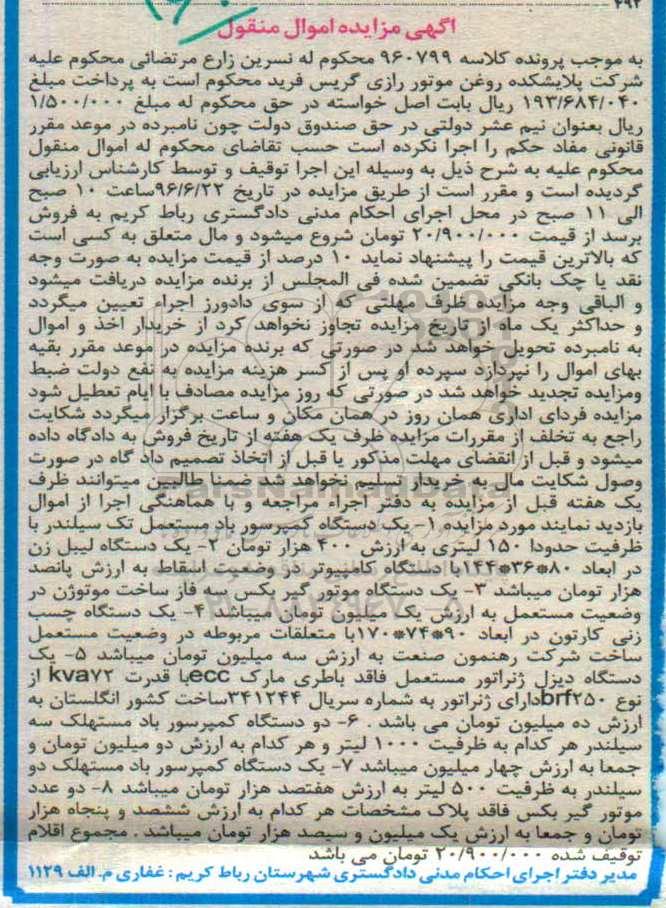 ۴۹۲
آگهی مزایده اموال منقول
به موجب پرونده کلاسه ۹۶۰۷۹۹ محکوم له نسرین زارع مرتضائی محکوم علیه
شرکت پلایشکده روغن موتور رازی گریس فرید محکوم است به پرداخت مبلغ
۱۹۳/۶۸۴/۰۴۰ ریال بابت اصل خواسته در حق محکوم له مبلغ ۱/۵۰۰/۰۰۰
ریال بعنوان نیم عشر دولتی در حق صندوق دولت چون نامبرده در موعد مقرر
قانونی مفاد حکم را اجرا نکرده است حسب تقاضای محکوم له اموال منقول
محکوم علیه به شرح ذیل به وسیله این اجرا توقیف و توسط کارشناس ارزیابی
گردیده است و مقرر است از طریق مزایده در تاریخ ۹۶/۶/۲۲ساعت ۱۰ صبح
الی ۱۱ صبح در محل اجرای احکام مدنی دادگستری رباط کریم به فروش
برسد از قیمت ۲۰/۹۰۰/۰۰۰ تومان شروع میشود و مال متعلق به کسی است
که بالاترین قیمت را پیشنهاد نماید ۱۰ درصد از قیمت مزایده به صورت وجه
نقد یا چک بانکی تضمین شده فی المجلس از برنده مزایده دریافت میشود
و الباقی وجه مزایده ظرف مهلتی که از سوی دادورز اجراء تعیین میگردد
و حداکثر یک ماه از تاریخ مزایده تجاوز نخواهد کرد از خریدار اخذ و اموال
به نامبرده تحویل خواهد شد در صورتی که برنده مزایده در موعد مقرر بقیه
بهای اموال را نپردازد سپرده او پس از کسر هزینه مزایده به نفع دولت ضبط
ومزایده تجدید خواهد شد در صورتی که روز مزایده مصادف با ایام تعطیل شود
مزایده فردای اداری همان روز در همان مکان و ساعت برگزار میگردد شکایت
راجع به تخلف از مقررات مزایده ظرف یک هفته از تاریخ فروش به دادگاه داده
میشود و قبل از انقضای مهلت مذکور یا قبل از اتخاذ تصمیم داد گاه در صورت
وصول شکایت مال به خریدار تسلیم نخواهد شد ضمنا طالبین میتوانند ظرف
یک هفته قبل از مزایده به دفتر اجراء مراجعه و با هماهنگی اجرا از اموال
بازدید نمایند مورد مزایده ۱- یک دستگاه کمپرسور باد مستعمل تک سیلندر با
ظرفیت حدودا ۱۵۰ لیتری به ارزش ۴۰۰ هزار تومان ۲- یک دستگاه لیبل زن
در ابعاد ۸۰*۳۶*۱۴۴با دستگاه کامپیوتر در وضعیت اسقاط به ارزش پانصد
هزار تومان میباشد ۳- یک دستگاه موتور گیر بکس سه فاز ساخت موتوژن در
وضعیت مستعمل به ارزش یک میلیون تومان میباشد ۴- یک دستگاه چسب
زنی کارتون در ابعاد ۹۰*۷۴*۱۷۰با متعلقات مربوطه در وضعیت مستعمل
ساخت شرکت رهنمون صنعت به ارزش سه میلیون تومان میباشد ۵- یک
دستگاه دیزل ژنراتور مستعمل فاقد باطری مارک eccبا قدرت kva۷۲ از
نوع brf۲۵۰دارای ژنراتور به شماره سریال ۳۴۱۲۴۴ساخت کشور انگلستان به
ارزش ده میلیون تومان می باشد . ۶- دو دستگاه کمپرسور باد مستهلک سه
سیلندر هر کدام به ظرفیت ۱۰۰۰ لیتر و هر کدام به ارزش دو میلیون تومان و
جمعا به ارزش چهار میلیون میباشد ۷- یک دستگاه کمپرسور باد مستهلک دو
سیلندر به ظرفیت ۵۰۰ لیتر به ارزش هفتصد هزار تومان میباشد ۸- دو عدد
موتور گیر بکس فاقد پلاک مشخصات هر کدام به ارزش ششصد و پنجاه هزار
تومان و جمعا به ارزش یک میلیون و سیصد هزار تومان میباشد . مجموع اقلام
توقیف شده ۲۰/۹۰۰/۰۰۰ تومان می باشد
مدیر دفتر اجرای احکام مدنی دادگستری شهرستان رباط کریم : غفاری م. الف ۱۱۲۹